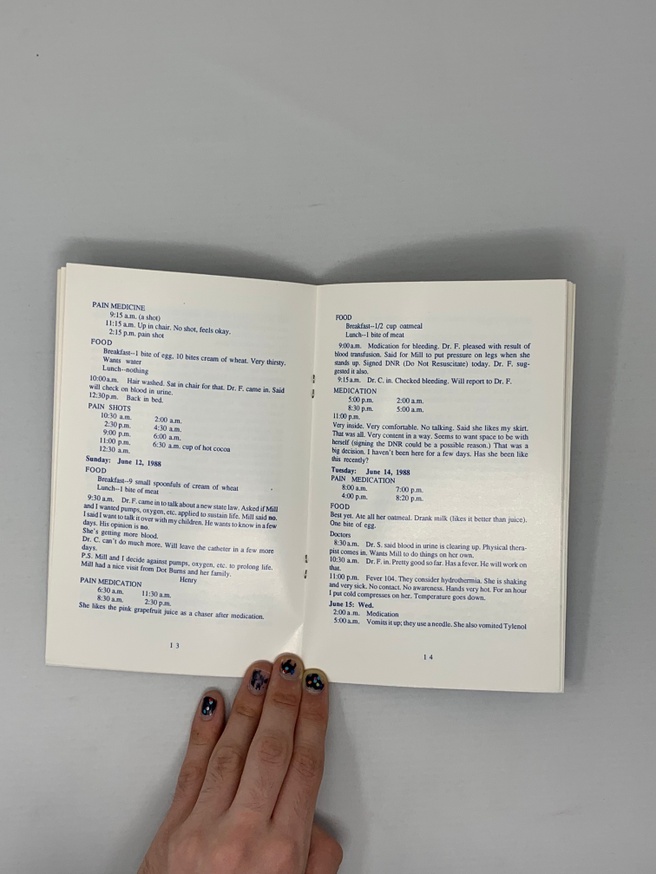 PAIN MEDICINE
9:15 a.m. (a shot)
11:15 a.m. Up in chair. No shot, feels okay.
2:15 p.m. pain shot
FOOD
Breakfast--1 bite of egg, 10 bites cream of wheat. Very thirsty.
Wants water
Lunch--nothing
10:00a.m. Hair washed. Sat in chair for that. Dr. F. came in. Said
will check on blood in urine.
12:30p.m. Back in bed.
PAIN SHOTS
10:30 a.m. 2:00 a.m.
2:30 p.m. 4:30 a.m.
9:00 p.m. 6:00 a.m.
11:00 p.m. 6:30 a.m. cup of hot cocoa
12:30 a.m.
Sunday: June 12, 1988
FOOD
Breakfast--9 small spoonfuls of cream of wheat
Lunch--1 bite of meat
9:30 a.m. Dr. F. came in to talk about a new state law. Asked if Mill
and I wanted pumps, oxygen, etc. applied to sustain life. Mill said no.
I said I want to talk it over with my children. He wants to know in a few
days. His opinion is no.
She's getting more blood.
Dr. C. can't do much more. Will leave the catheter in a few more
days.
P.S. Mill and I decide against pumps, oxygen, etc. to prolong life.
Mill had a nice visit from Dot Burns and her family.
Henry
PAIN MEDICATION
6:30 a.m. 11:30 a.m.
8:30 a.m. 2:30 p.m.
She likes the pink grapefruit juice as a chaser after medication.
13
FOOD
Breakfast--1/2 cup oatmeal
Lunch--1 bite of meat
9:00a.m. Medication for bleeding. Dr. F. pleased with result of
blood transfusion. Said for Mill to put pressure on legs when she
stands up. Signed DNR (Do Not Resuscitate) today. Dr. F. sug-
gested it also.
9:15 a.m. Dr. C. in. Checked bleeding. Will report to Dr. F.
MEDICATION
5:00 p.m. 2:00 a.m.
8:30 p.m. 5:00 a.m.
11:00 p.m.
Very inside. Very comfortable. No talking. Said she likes my skirt.
That was all. Very content in a way. Seems to want space to be with
herself (signing the DNR could be a possible reason.) That was a
big decision. I haven't been here for a few days. Has she been like
this recently?
Tuesday: June 14, 1988
PAIN MEDICATION
8:00 a.m. 7:00 p.m.
4:00 p.m. 8:20 p.m.
FOOD
Best yet. Ate all her oatmeal. Drank milk (likes it better than juice).
One bite of egg.
Doctors
8:30 a.m. Dr. S. said blood in urine is clearing up. Physical thera-
pist comes in. Wants Mill to do things on her own.
10:30 a.m. Dr. F. in. Pretty good so far. Has a fever. He will work on
that.
11:00 p.m. Fever 104. They consider hydrothermia. She is shaking
and very sick. No contact. No awareness. Hands very hot. For an hour
I put cold compresses on her. Temperature goes down.
June 15: Wed.
2:00 a.m. Medication
5:00 a.m. Vomits it up; they use a needle. She also vomited Tylenol
14